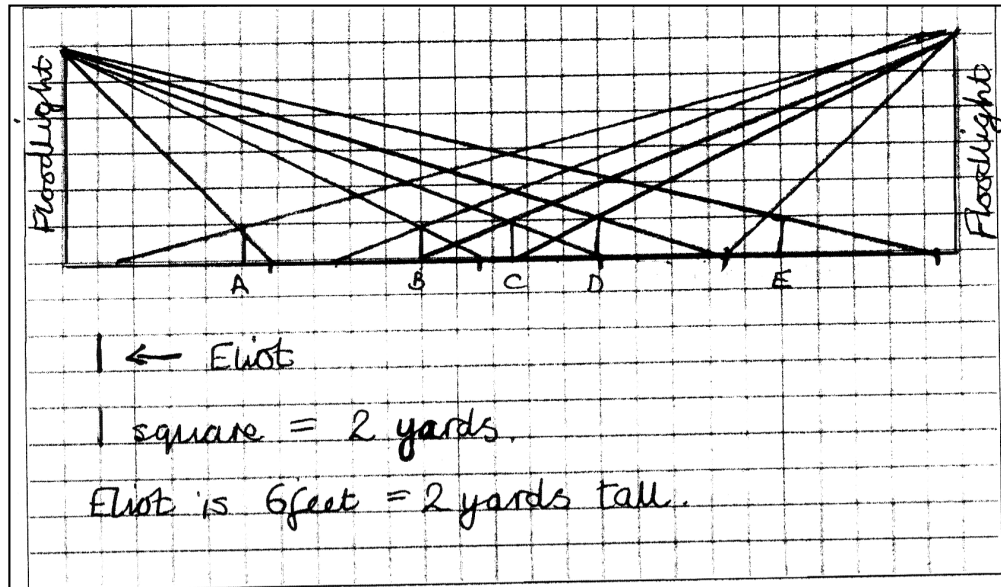 Floodlight
Floodlight
A B C D E
← Eliot
1 square = 2 yards.
Eliot is 6feet = 2 yards tall.